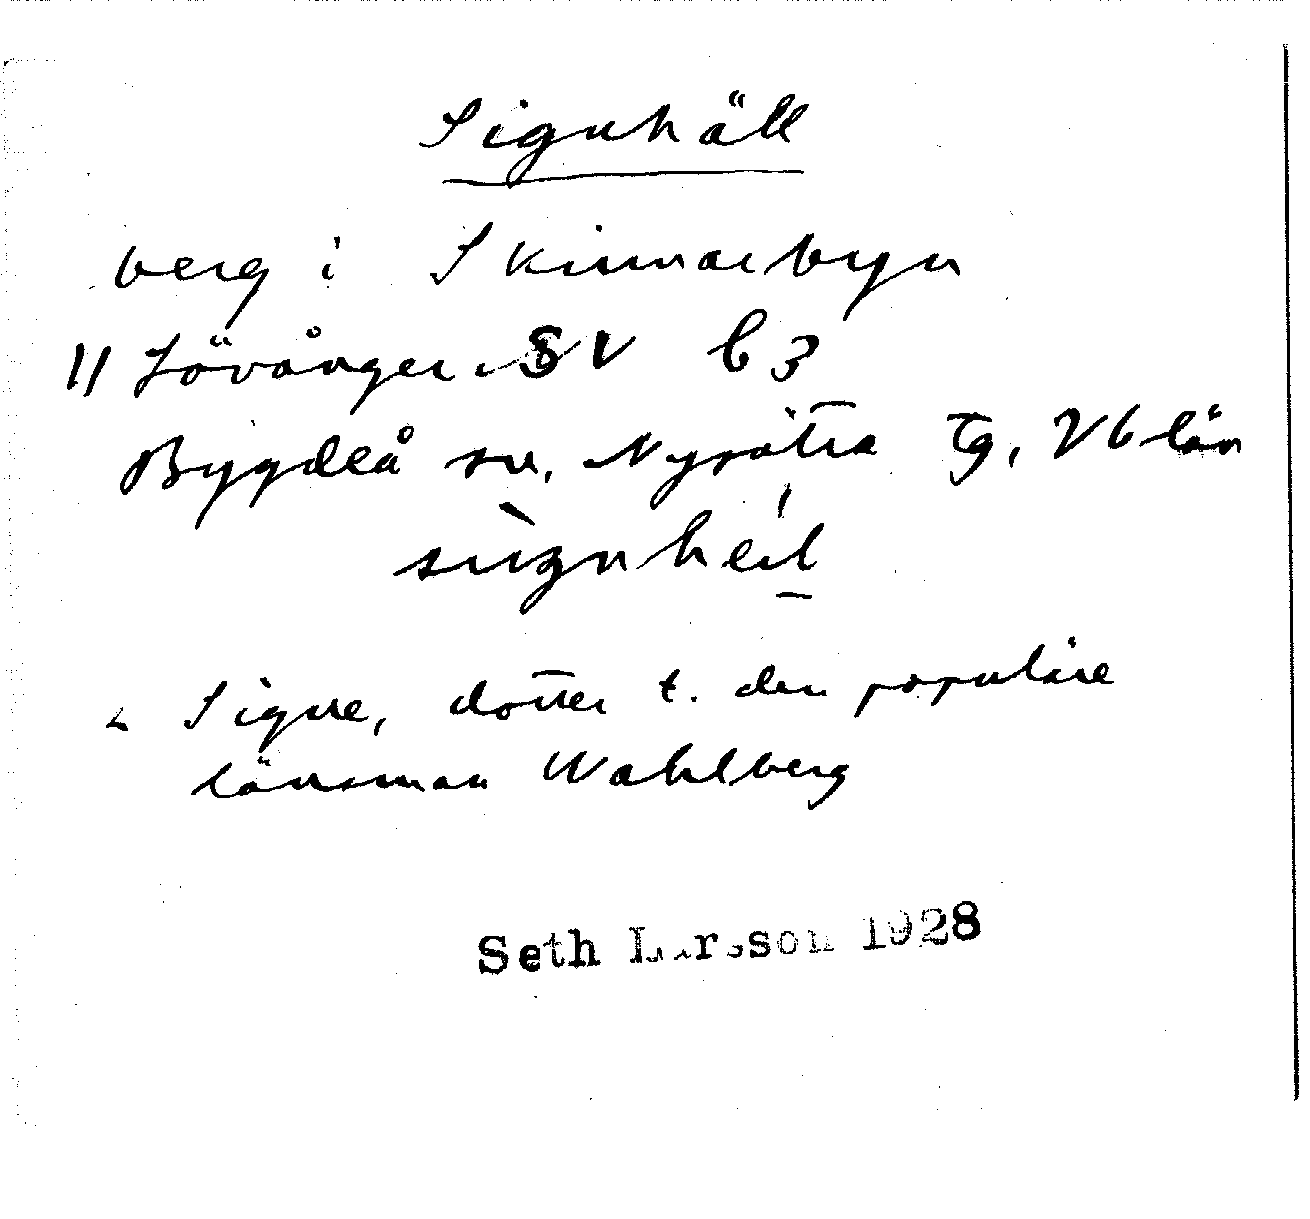 Signhäll
berg i Skinnarbyn
// Lövånger SV b3
Bygdeå sn, Nysätra Tg, Vb län
sìgnhel
< Signe, dotter t. den populäre
länsman Wahlberg
Seth Larsson 1928